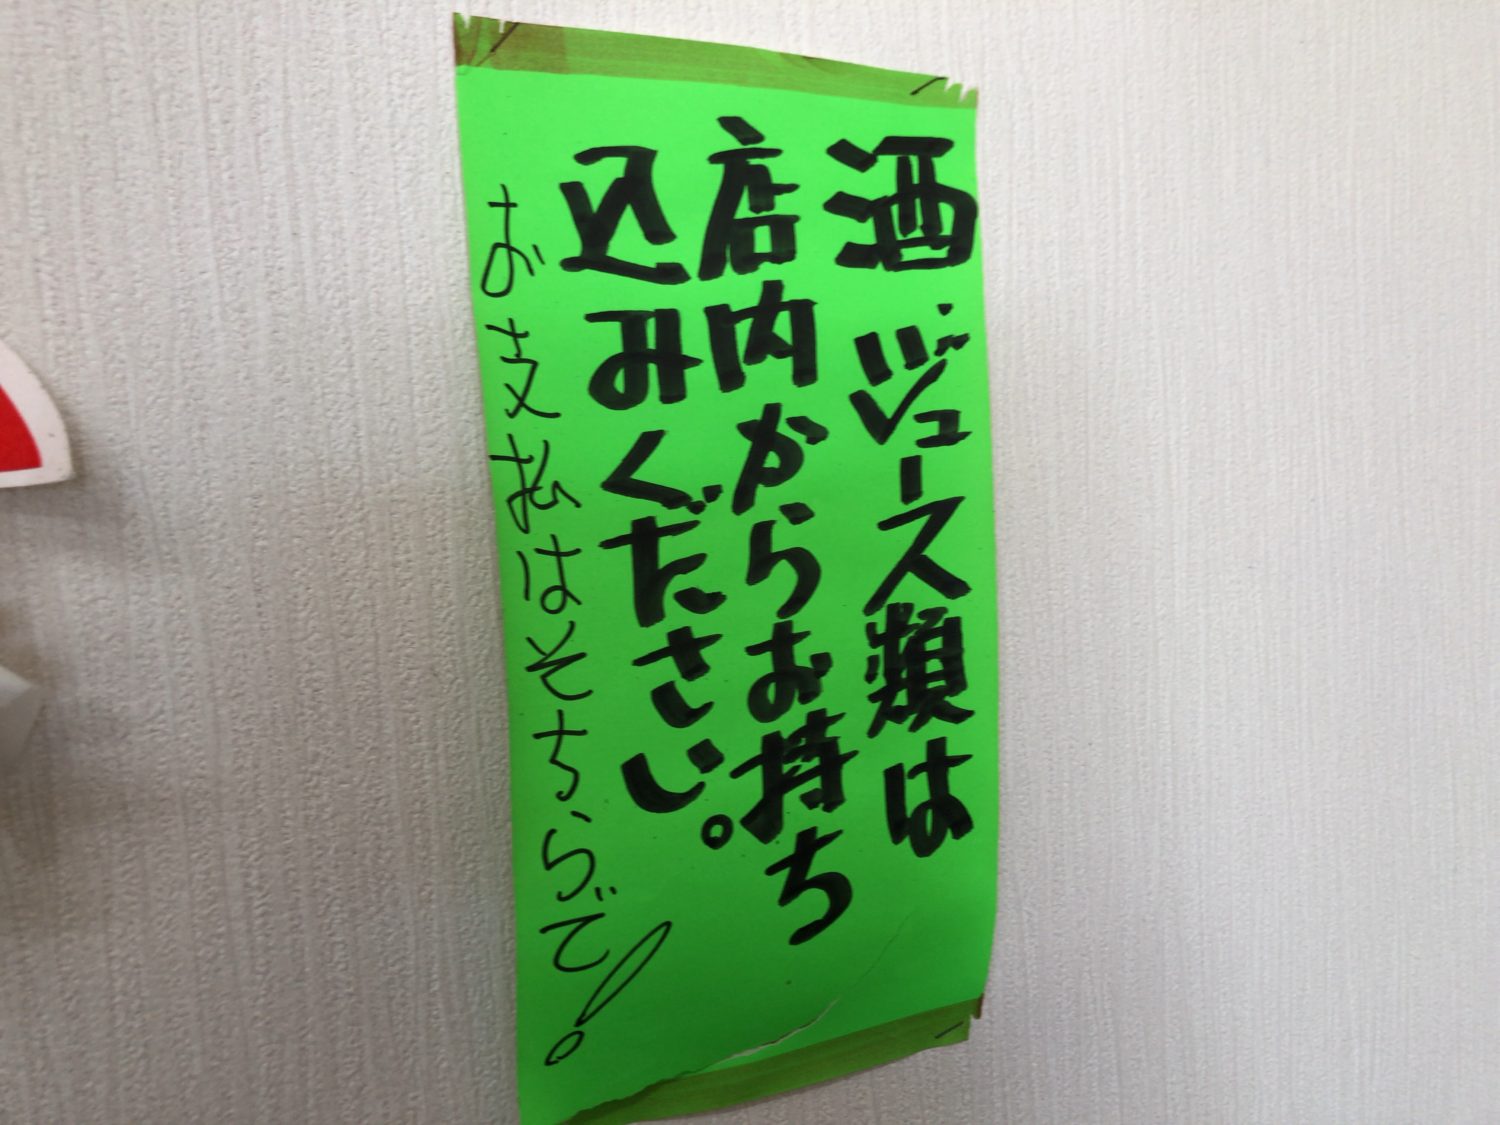 酒・ジュース類は
店内からお持ち
込みください。
お支払はそちらで!